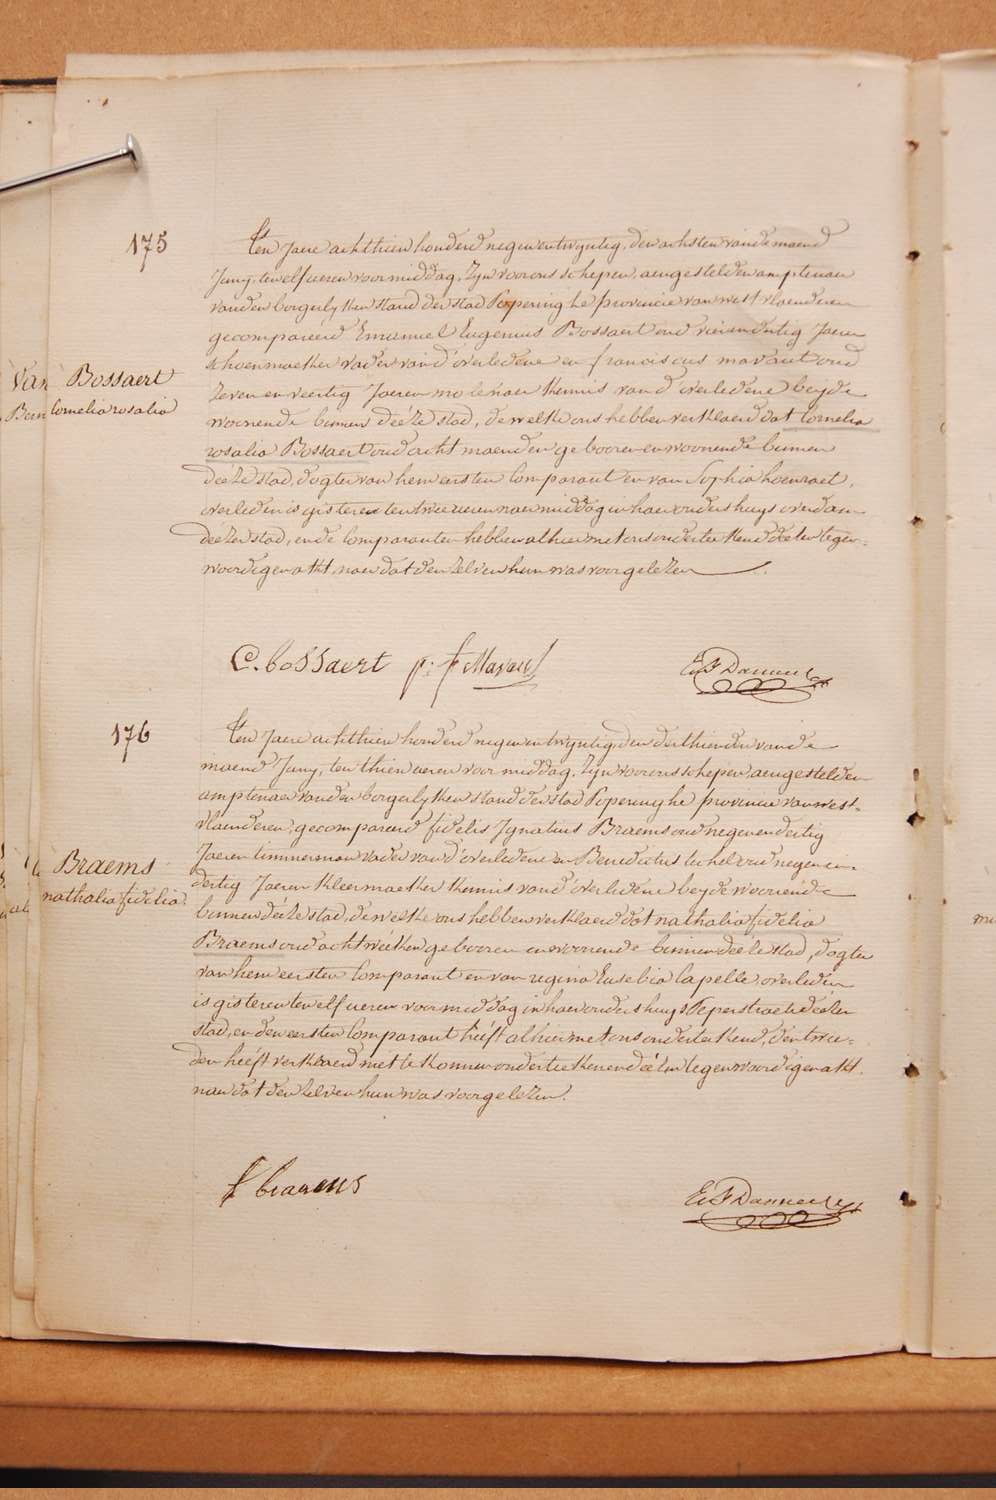 175
Ten Jaere achthien honderd negenentwyntig, den achsten van de maend
Juny, ten elf ueren voormiddag, Zyn voor ons schepen, aengestelden amptenaer
van den borgerlyken stand der stad Poperinghe provincie van west vlaenderen
gecompareerd Emanuel Eugenius Bossaert oud vierendertig Jaeren
schoenmaeker vader van d'overledene en franciscus mavaut oud
Zevenenveertig Jaeren molenaer kennis van d'overledene beyde
Van
Bossaert
Bern
Cornelia rosalia
woonende binnen deéze stad, dewelke ons hebben verklaerd dat Cornelia
rosalia Bossaert oud acht maenden geboren en woonende binnen
deéze stad, dogter van hem eersten Comparant en van Sophia hoenraet,
overleden is gisteren ten twee ueren naermiddag in haer ouders huys overdam
deézer stad, en de Comparanten hebben alhier met ons onderteekend deézen tegen-
woordigen akt, naer dat den zelven hun was voorgelezen.
C. bossaert p: f Mavaut E F Danneel
176
Ten Jaere achthien honderd negenentwyntig, den derthienden van de
maend Juny, ten thien ueren voormiddag, Zyn voor ons schepen, aengestelden
amptenaer van den borgerlyken stand der stad Poperinghe provincie van west-
vlaenderen, gecompareerd fidelis Ignatius Braems oud negenendertig
Jaeren timmerman vader van d'overledene en Benedictus techel oud negenen-
dertig Jaeren kleermaeker kennis van d'overledene beyde woonende
Braems
nathalia fidelia
binnen deéze stad, dewelke ons hebben verklaerd dat nathalia fidelia
Braems oud acht weéken geboren en woonende binnen deéze stad, dogter
van hem eersten Comparant en van regina Eusebia Capelle, overleden
is gisteren ten elf ueren voormiddag in haer ouders huys Peperstraete deézer
stad, en den eersten Comparant heéft alhier met ons onderteekend, den twee-
den heéft verklaerd niet te konnen onderteekenen deézen tegenwoordigen akt.
naer dat den zelven hun was voorgelezen.
f braems E F Danneel